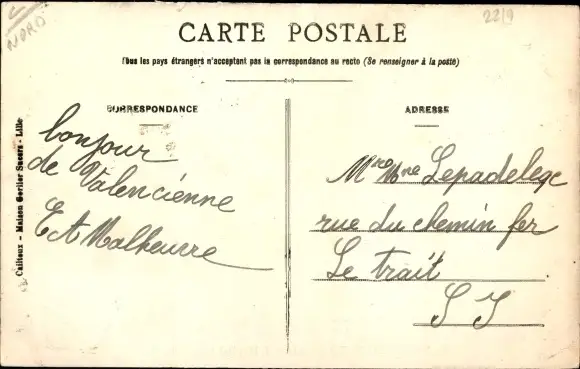 NORD
22/9
CARTE POSTALE
Tous les pays étrangers n'acceptent pas la correspondance au recto (Se renseigner à la poste)
CORRESPONDANCE
bonjour
de Valencienne
E A Malheurre
Cailteux - Maison Gorlier Succrs - Lille
ADRESSE
Mr Mme Lepadelege
rue du chemin fer
Le trait
S I